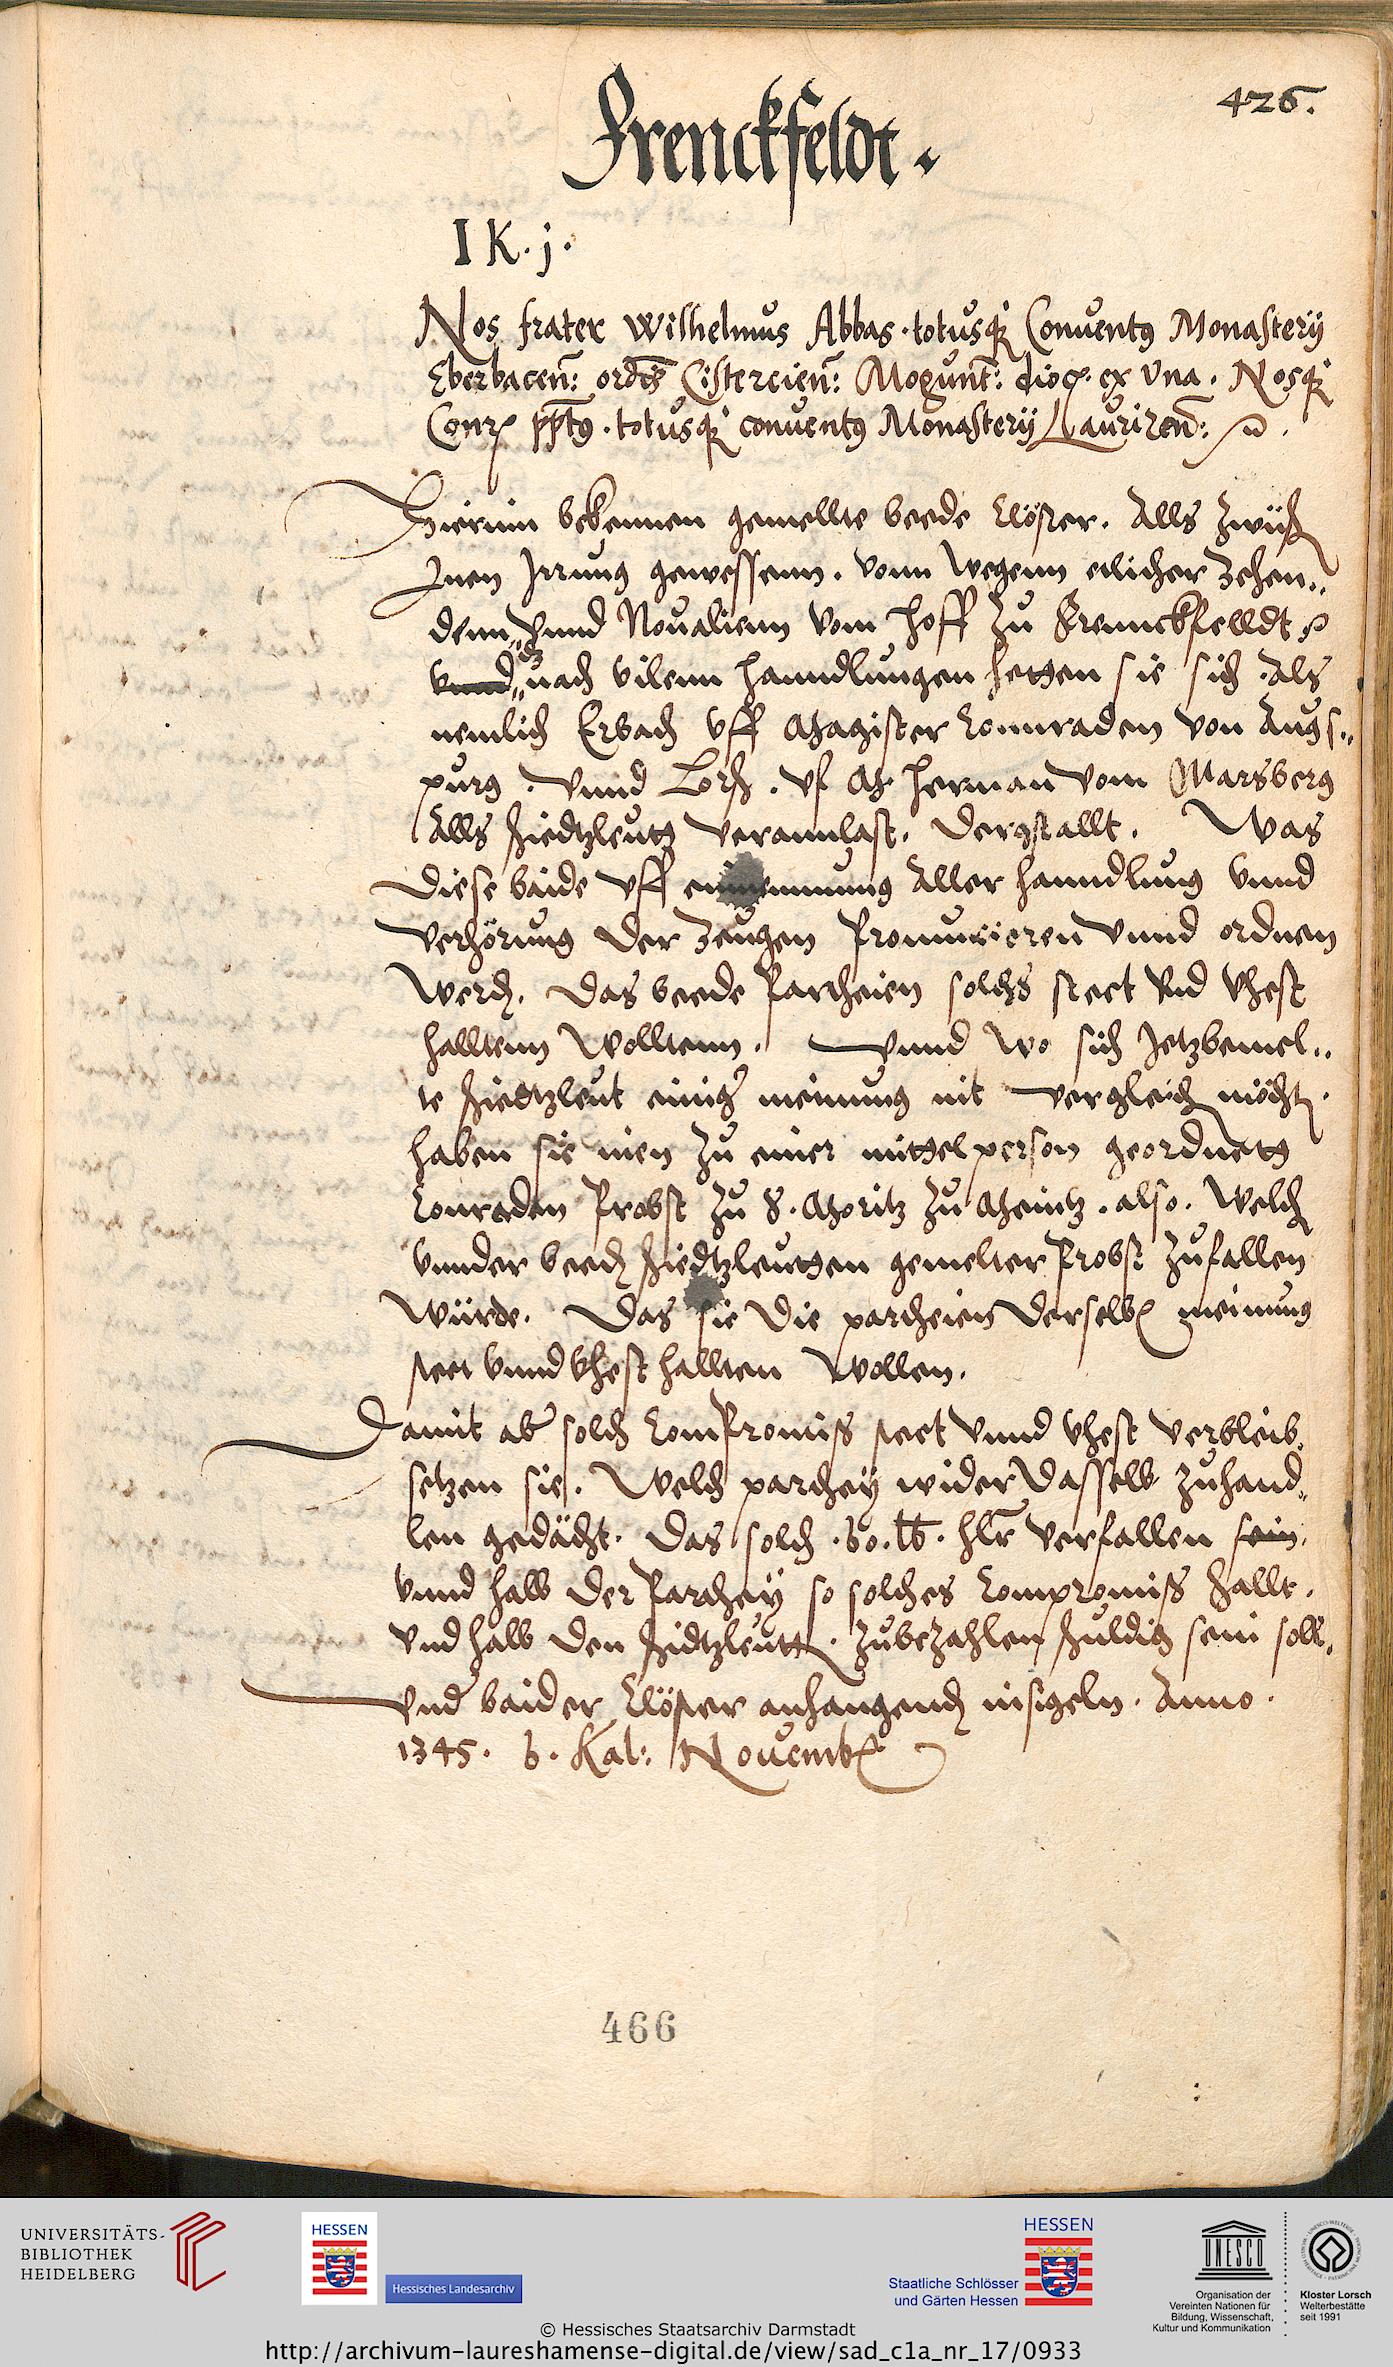 426.
Frenckfeldt.
I K. j.
Nos frater Wilhelmus Abbas. totusq₃ Conuentꝰ Monastery
Eberbacen̄: ordīs Cistercien̄: Mogunt̄: dioc. ex Una. Nosq₃
Conr. pp̄tꝰ. totusq₃ conuentꝰ Monastery Laurizen̄:
Hierinn bekennen gemellte beede Clöster. Alls Zwüsch
Inen Irrung gewessenn. vonn wegenn etlicher Zehen..
denn, Vnnd Noualienn vom Hoff zu Frennckfelldt
vnnd nach vilenn Hanndlungen setzen sie sich. Als
nemlich Erbach vff Magister Connraden von Augs..
purg. Vnnd Lorsch. vf M. Herman vom Marsberg
Alls schiedtzleute veranlast. Dergstallt. Was
diese baide vff einnemmung Aller hanndlung vnnd
verhörung der Zeugen Pronuncieren Vnnd ordnen
werden. Das beede Partheien solchs steet Vnd Vhest
halltenn wolltenn. Vnnd wo sich Jetzbemel..
te schiedtzleut einiger meinung nit vergleichen möchten.
haben sie inen zu einer mittelperson geordnett
Conraden Probst zu S. Moritz zu Meintz. also. Welchen
vnnder beeden schiedtzleutten gemelter Probst zufallen
würde. Das sie die partheien derselben meinung
steet vnnd vhest hallten wollen.
Damit aber solch Compromiss steet vnnd vhest verbleib.
setzen sie. Welch parthey wider dasselb zuhand,,
len gedächt. Das solch. 60. lb. hlr verfallen sein.
vnnd halb der Parthey so solches Compromiss hallt.
vnd halb den schidtzleutten. zubezahlen schuldig sein soll.
Vnder baider Clöster anhangenden insigeln. Anno.
1345. 6. Kal: Novemb.
466
UNIVERSITÄTS-
BIBLIOTHEK
HEIDELBERG
HESSEN
Hessisches Landesarchiv
HESSEN
Staatliche Schlösser
und Gärten Hessen
UNESCO
Organisation der
Vereinten Nationen für
Bildung, Wissenschaft,
Kultur und Kommunikation
Kloster Lorsch
Welterbestätte
seit 1991
© Hessisches Staatsarchiv Darmstadt
http://archivum-laureshamense-digital.de/view/sad_c1a_nr_17/0933